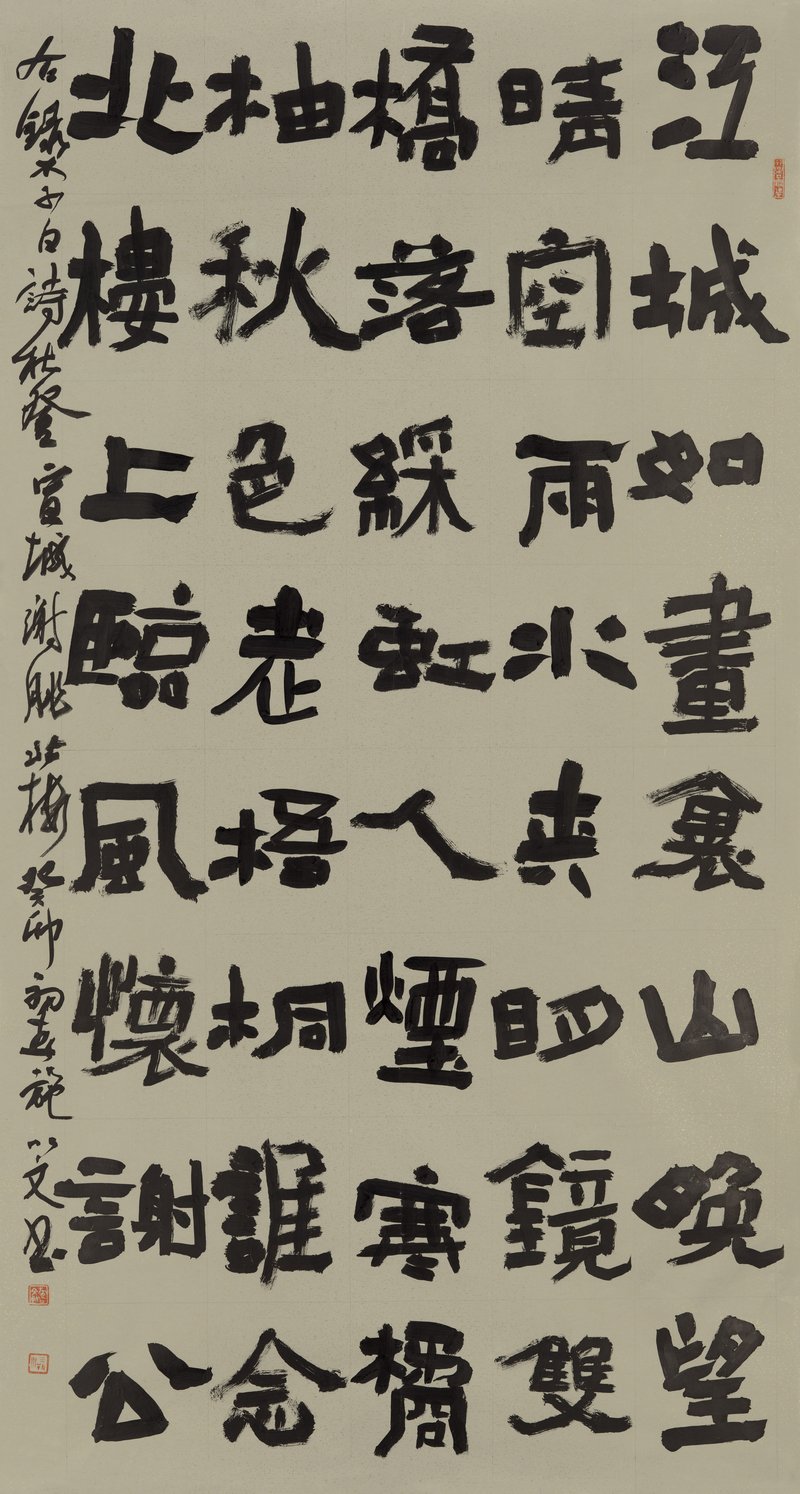 江城如畫裏山晚望
晴空兩水夾明鏡雙
橋落綵虹人煙寒橘
柚秋色老梧桐誰念
北樓上臨風懷謝公
右錄李白詩秋登宣城謝朓北樓癸卯初春文書